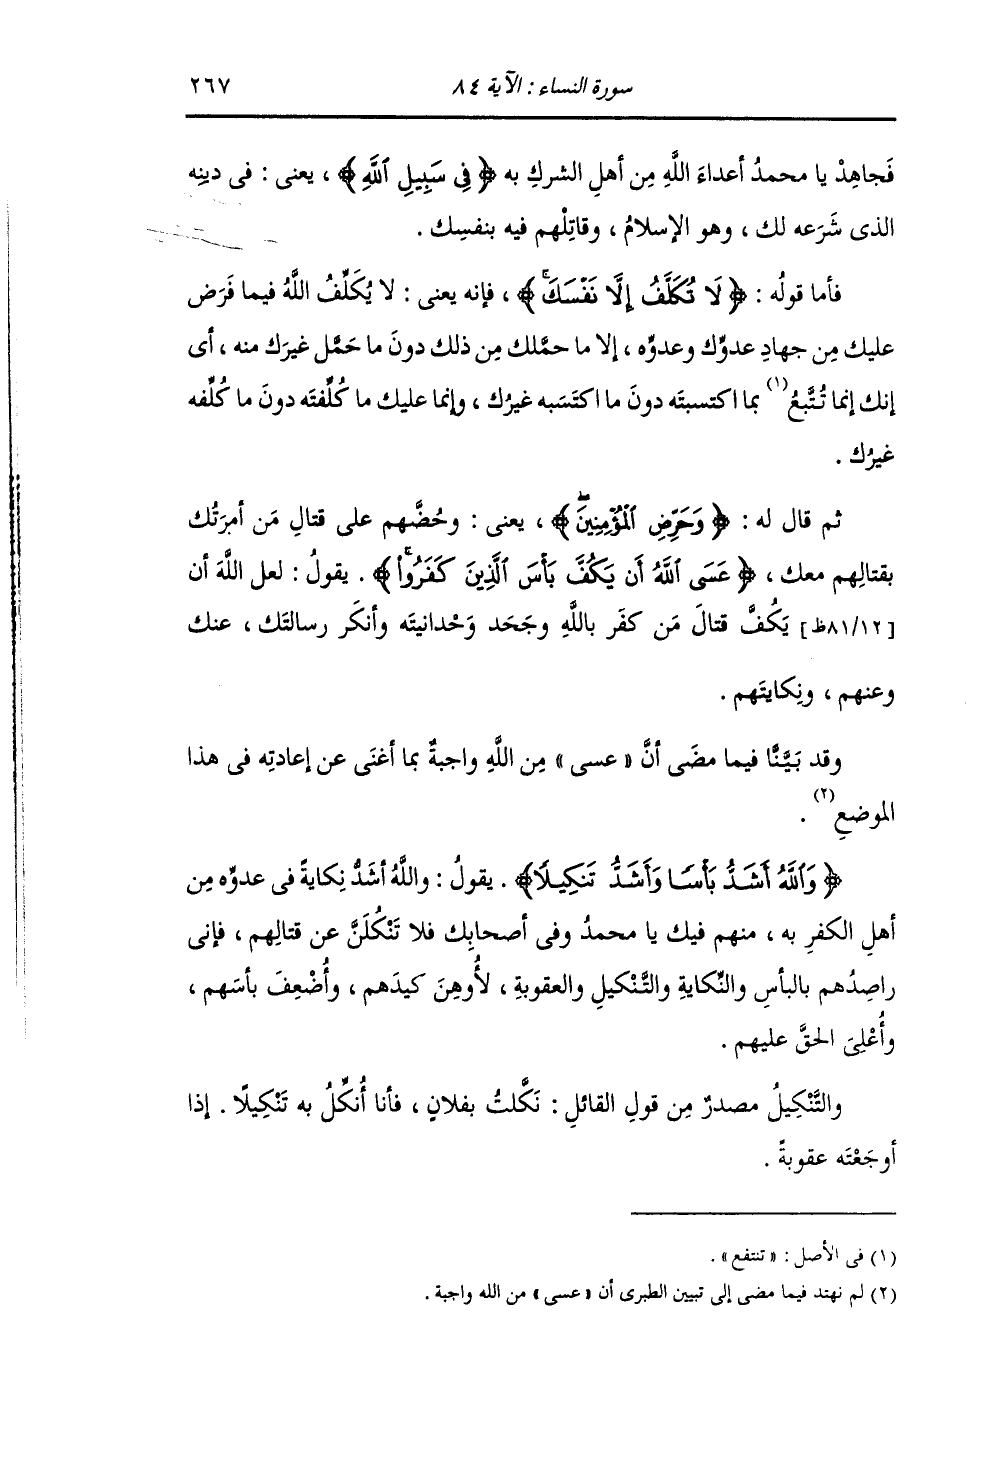 سورة النساء : الآية ٨٤ ٢٦٧
فَجاهِدْ يا محمدُ أعداءَ اللَّهِ مِن أهلِ الشركِ به ﴿ فِي سَبِيلِ ٱللَّهِ ﴾ ، يعنى : فى دينِه
الذى شَرَعه لك ، وهو الإسلامُ ، وقاتِلْهم فيه بنفسِك .
فأما قولُه : ﴿ لَا تُكَلَّفُ إِلَّا نَفْسَكَۚ ﴾ ، فإنه يعنى : لا يُكَلِّفُ اللَّهُ فيما فَرَض
عليك مِن جهادِ عدوِّك وعدوِّه ، إلا ما حمَّلك مِن ذلك دونَ ما حَمَّل غيرَك منه ، أى
إنك إنما تُتَّبعُ(١) بما اكتسبتَه دونَ ما اكتَسَبه غيرُك ، وإنما عليك ما كُلِّفتَه دونَ ما كُلِّفه
غيرُك .
ثم قال له : ﴿ وَحَرِّضِ ٱلْمُؤْمِنِينَۖ ﴾ ، يعنى : وحُضَّهم على قتالِ مَن أمرَتُك
بقتالِهم معك ، ﴿ عَسَى ٱللَّهُ أَن يَكُفَّ بَأْسَ ٱلَّذِينَ كَفَرُواْۚ ﴾ . يقولُ : لعل اللَّهَ أن
[٨١/١٢ظ] يَكُفَّ قتالَ مَن كفَر باللَّهِ وجَحَد وَحْدانيتَه وأنكَر رسالتَك ، عنك
وعنهم ، ونِكايتَهم .
وقد بَيَّنَّا فيما مضَى أنَّ « عسى » مِن اللَّهِ واجبةٌ بما أغنَى عن إعادتِه فى هذا
الموضعِ(٢) .
﴿ وَٱللَّهُ أَشَدُّ بَأْسًا وَأَشَدُّ تَنكِيلًا ﴾ . يقولُ : واللَّهُ أشَدُّ نِكايةً فى عدوِّه مِن
أهلِ الكفرِ به ، منهم فيك يا محمدُ وفى أصحابِك فلا تَنْكُلَنَّ عن قتالِهم ، فإنى
راصِدُهم بالبأسِ والنِّكايةِ والتَّنْكيلِ والعقوبةِ ، لأُوهِنَ كيدَهم ، وأُضْعِفَ بأسَهم ،
وأُعْلِىَ الحقَّ عليهم .
والتَّنْكِيلُ مصدرٌ مِن قولِ القائلِ : نَكَّلتُ بفلانٍ ، فأنا أُنَكِّلُ به تَنْكِيلًا . إذا
أوجَعْتَه عقوبةً .
(١) فى الأصل : « تنتفع » .
(٢) لم نهتد فيما مضى إلى تبيين الطبرى أن « عسى » من الله واجبة .